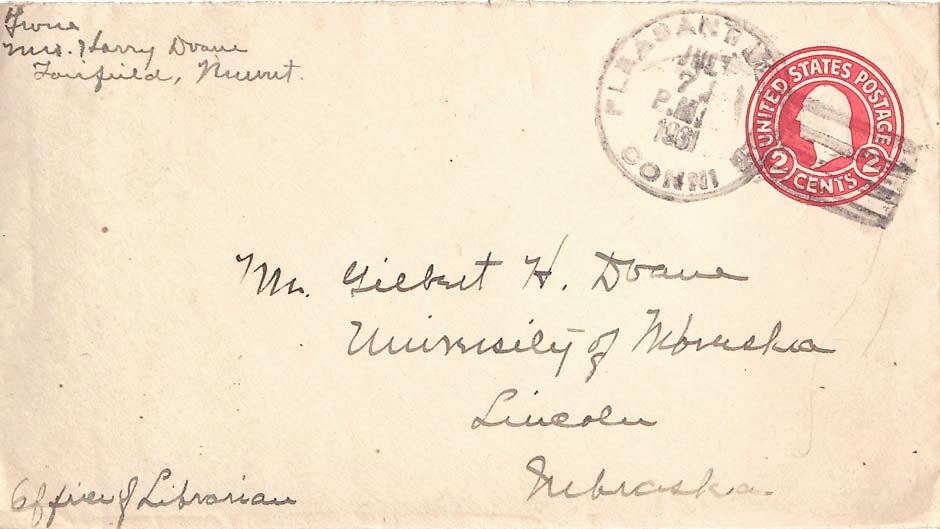 From
Mrs. Harry Doane
Fairfield,
PLEASANT
JUL
7
P.M.
1931
CONN
UNITED STATES POSTAGE
2 CENTS 2
Mr. Gilbert H. Doane
University of Nebraska
Lincoln
Nebraska
Office of Librarian